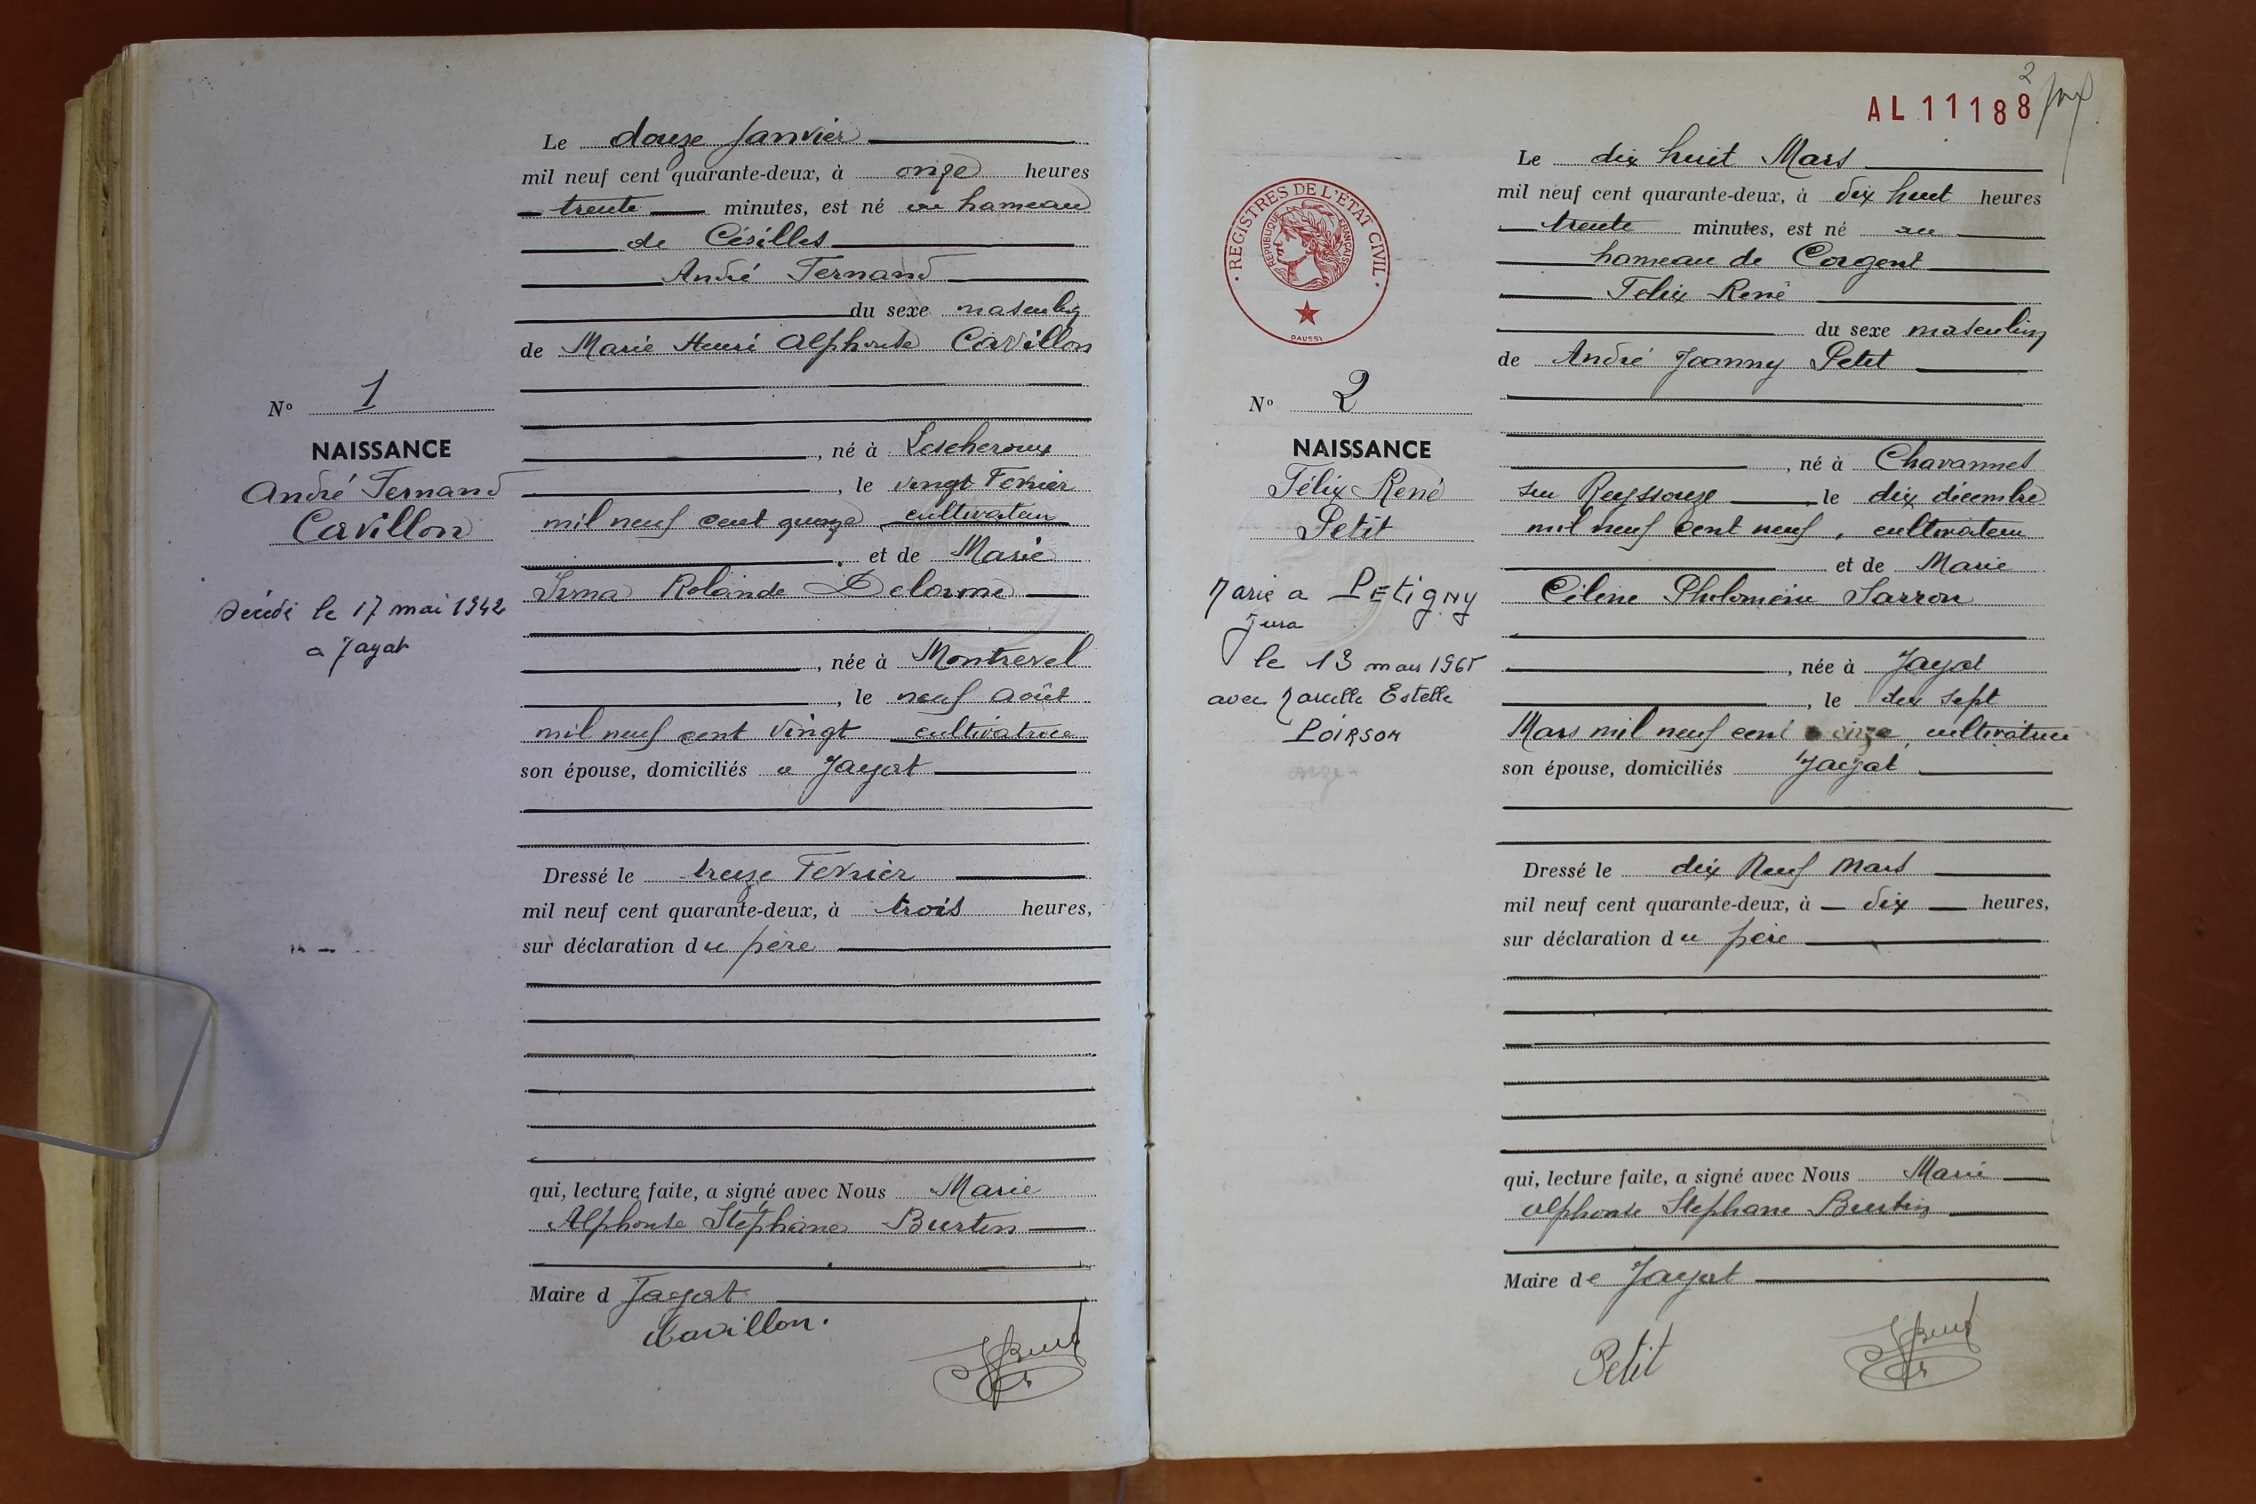 Le douze Janvier
mil neuf cent quarante-deux, à onze heures
trente minutes, est né au hameau
de Césilles
André Fernand
du sexe masculin
de Marie Henri Alphonse Cavillon
N° 1
NAISSANCE
André Fernand
Cavillon
né à Lescheroux
, le vingt Février
mil neuf cent quinze cultivateur
et de Marie
Irma Rolande Delorme
décédé le 17 mai 1942
a Jayat
, née à Montrevel
, le neuf août
mil neuf cent vingt cultivatrice
son épouse, domiciliés a Jayat
Dressé le treize Février
mil neuf cent quarante-deux, à trois heures,
sur déclaration du père
qui, lecture faite, a signé avec Nous Marie
Alphonse Stéphane Burtin
Maire d Jayat
Cavillon.
2
AL 11188
REGISTRES DE L'ÉTAT CIVIL
RÉPUBLIQUE FRANÇAISE
DAUSSI
Le dix huit Mars
mil neuf cent quarante-deux, à dix huit heures
trente minutes, est né au
hameau de Corgent
Félix René
du sexe masculin
de André Joanny Petit
N° 2
NAISSANCE
Félix René
Petit
, né à Chavannes
sur Reyssouze le dix décembre
mil neuf cent neuf, cultivateur
et de Marie
Céline Philomène Sarron
Marié a PEtigny
Jura
le 13 mars 1965
avec Marcelle Estelle
Poirson
onze
, née à Jayat
, le dix sept
Mars mil neuf cent onze, cultivatrice
son épouse, domiciliés Jayat
Dressé le dix Neuf Mars
mil neuf cent quarante-deux, à dix heures,
sur déclaration du père
qui, lecture faite, a signé avec Nous Marie
Alphonse Stephane Burtin
Maire de Jayat
Petit